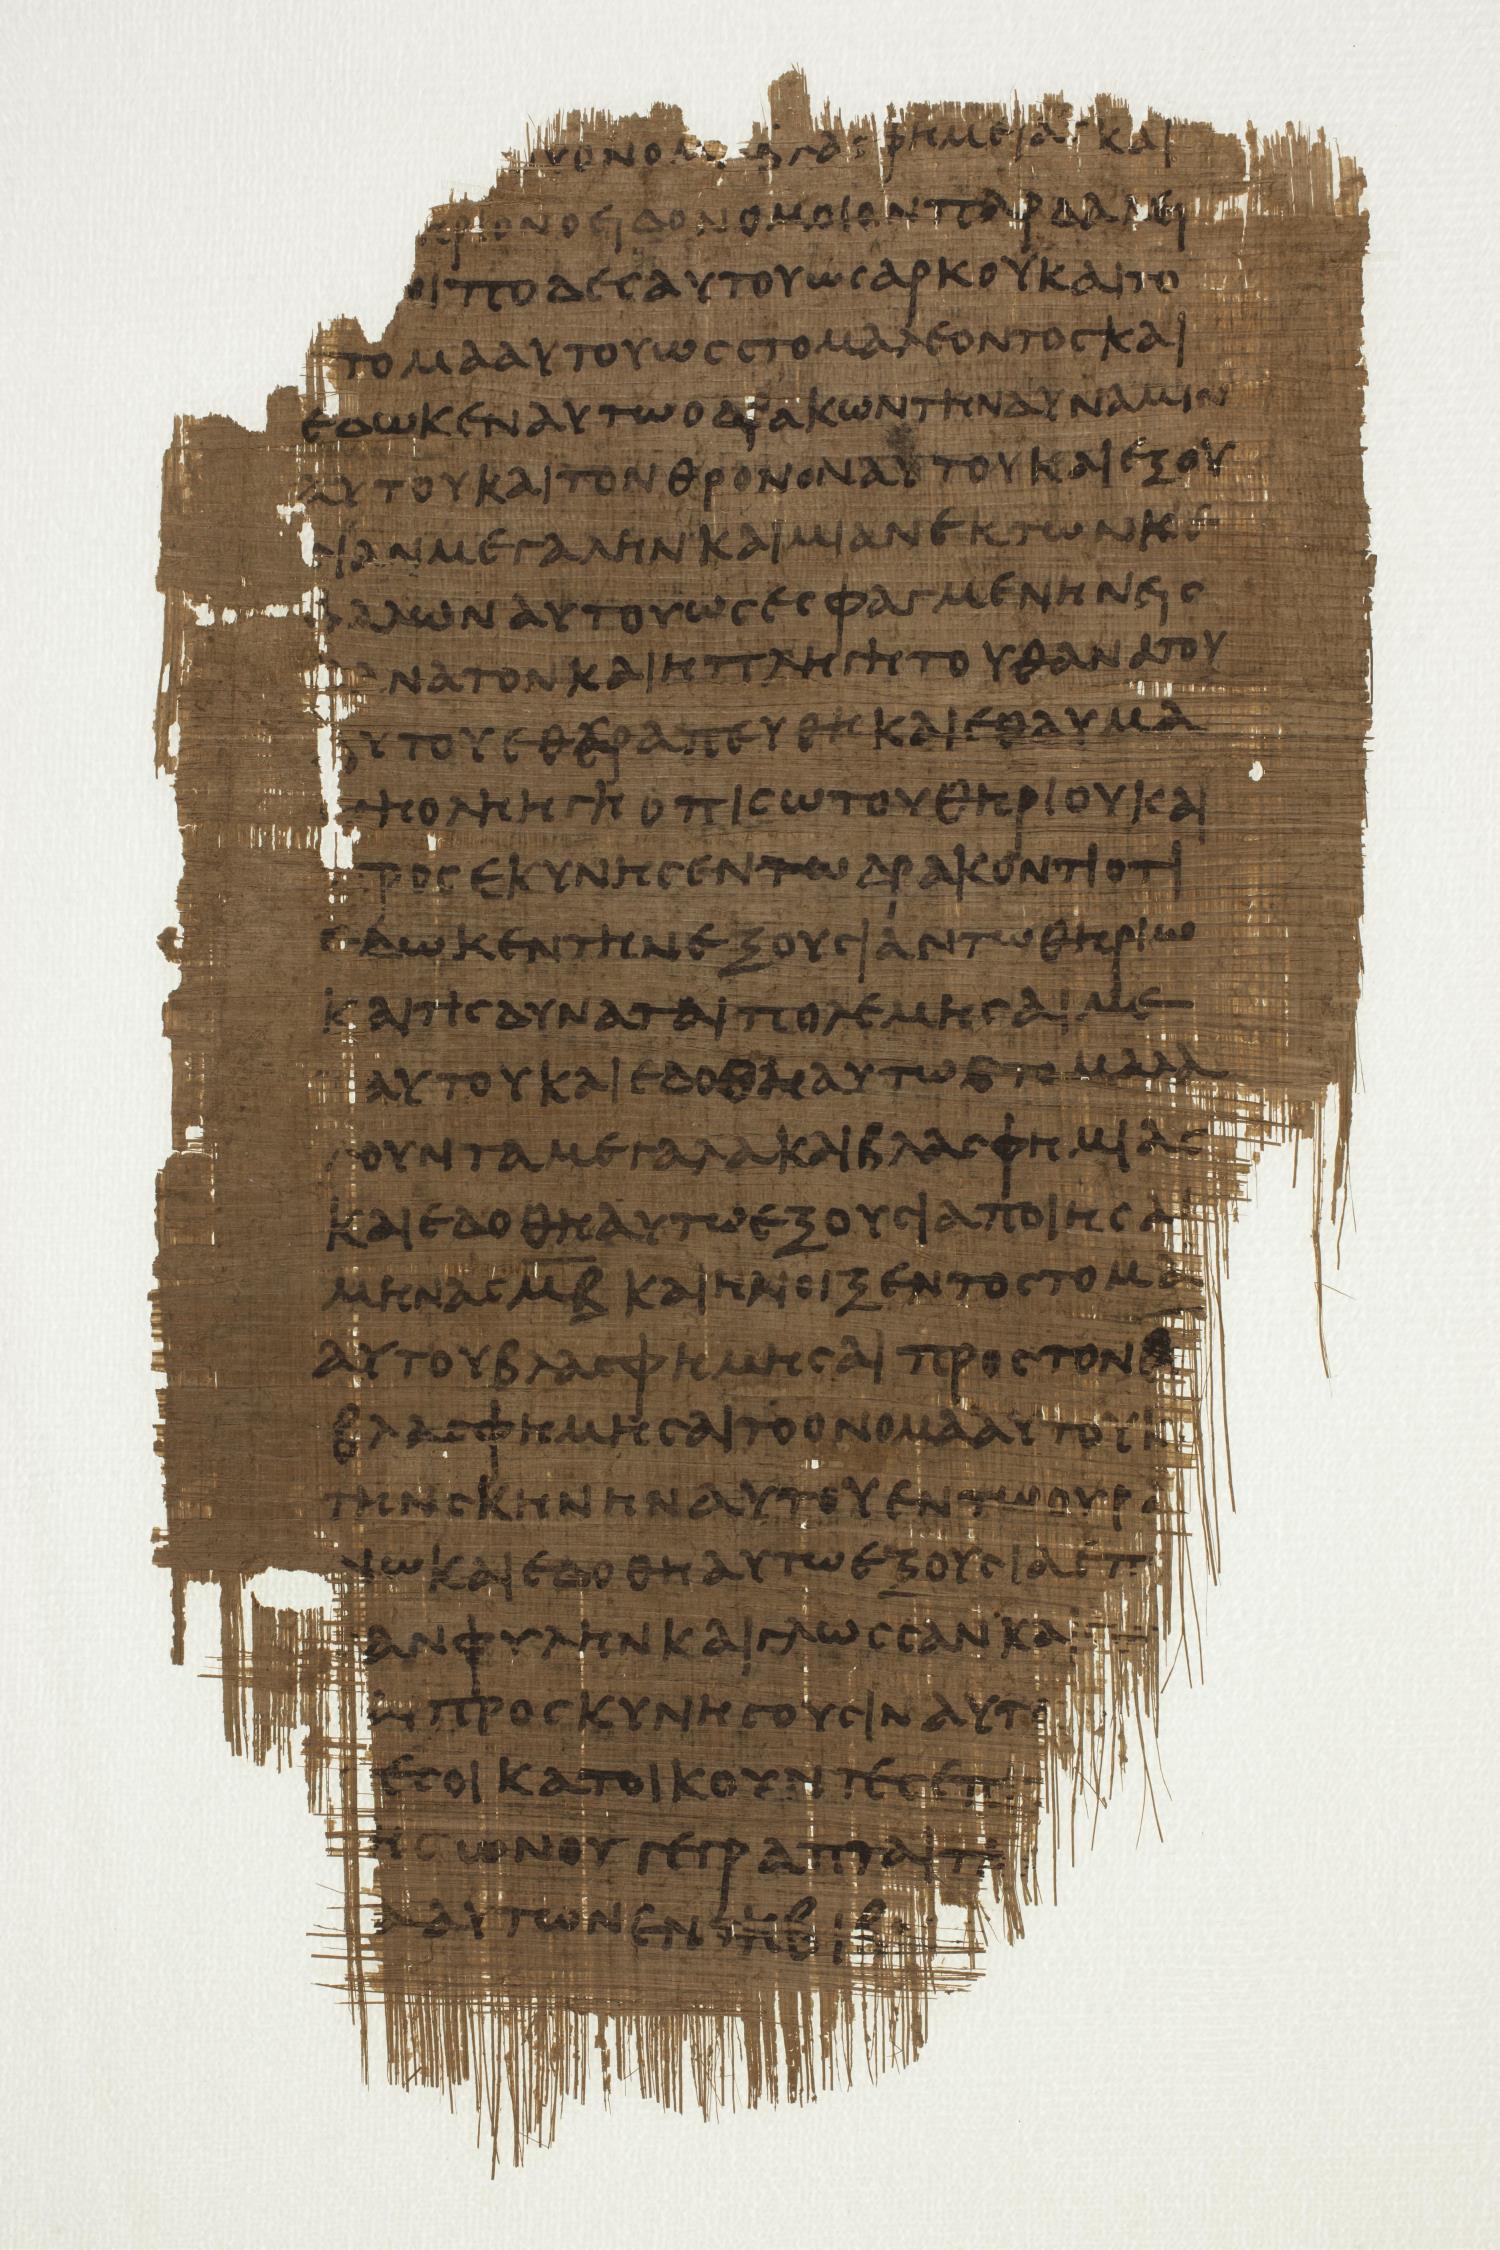 υτου ονομα βλασφημειας και
ηριον ο ειδον ομοιον παρδαλει
οι ποδες αυτου ως αρκου και το
τομα αυτου ως στομα λεοντος και
εδωκεν αυτω ο δρακων την δυναμιν
αυτου και τον θρονον αυτου και εξου
σιαν μεγαλην και μιαν εκ των κε
φαλων αυτου ως εσφαγμενην εις
θανατον και η πληγη του θανατου
αυτου εθεραπευθη και εθαυμα
σθη ολη η γη οπισω του θηριου και
προσεκυνησεν τω δρακοντι οτι
εδωκεν την εξουσιαν τω θηριω
και τις δυναται πολεμησαι με
αυτου και εδοθη αυτω στομα λα
λουντα μεγαλα και βλασφημιας
και εδοθη αυτω εξουσια ποιησαι
μηνας μβ και ηνοιξεν το στομα
αυτου βλασφημησαι προς τον θ
βλασφημησαι το ονομα αυτου κ
την σκηνην αυτου εν τω ουρα
νω και εδοθη αυτω εξουσια επ
αν φυλην και γλωσσαν και
προσκυνησουσιν αυτο
τες οι κατοικουντες επ
ης ων ου γεγραπται τ
α αυτων εν τη βιβ